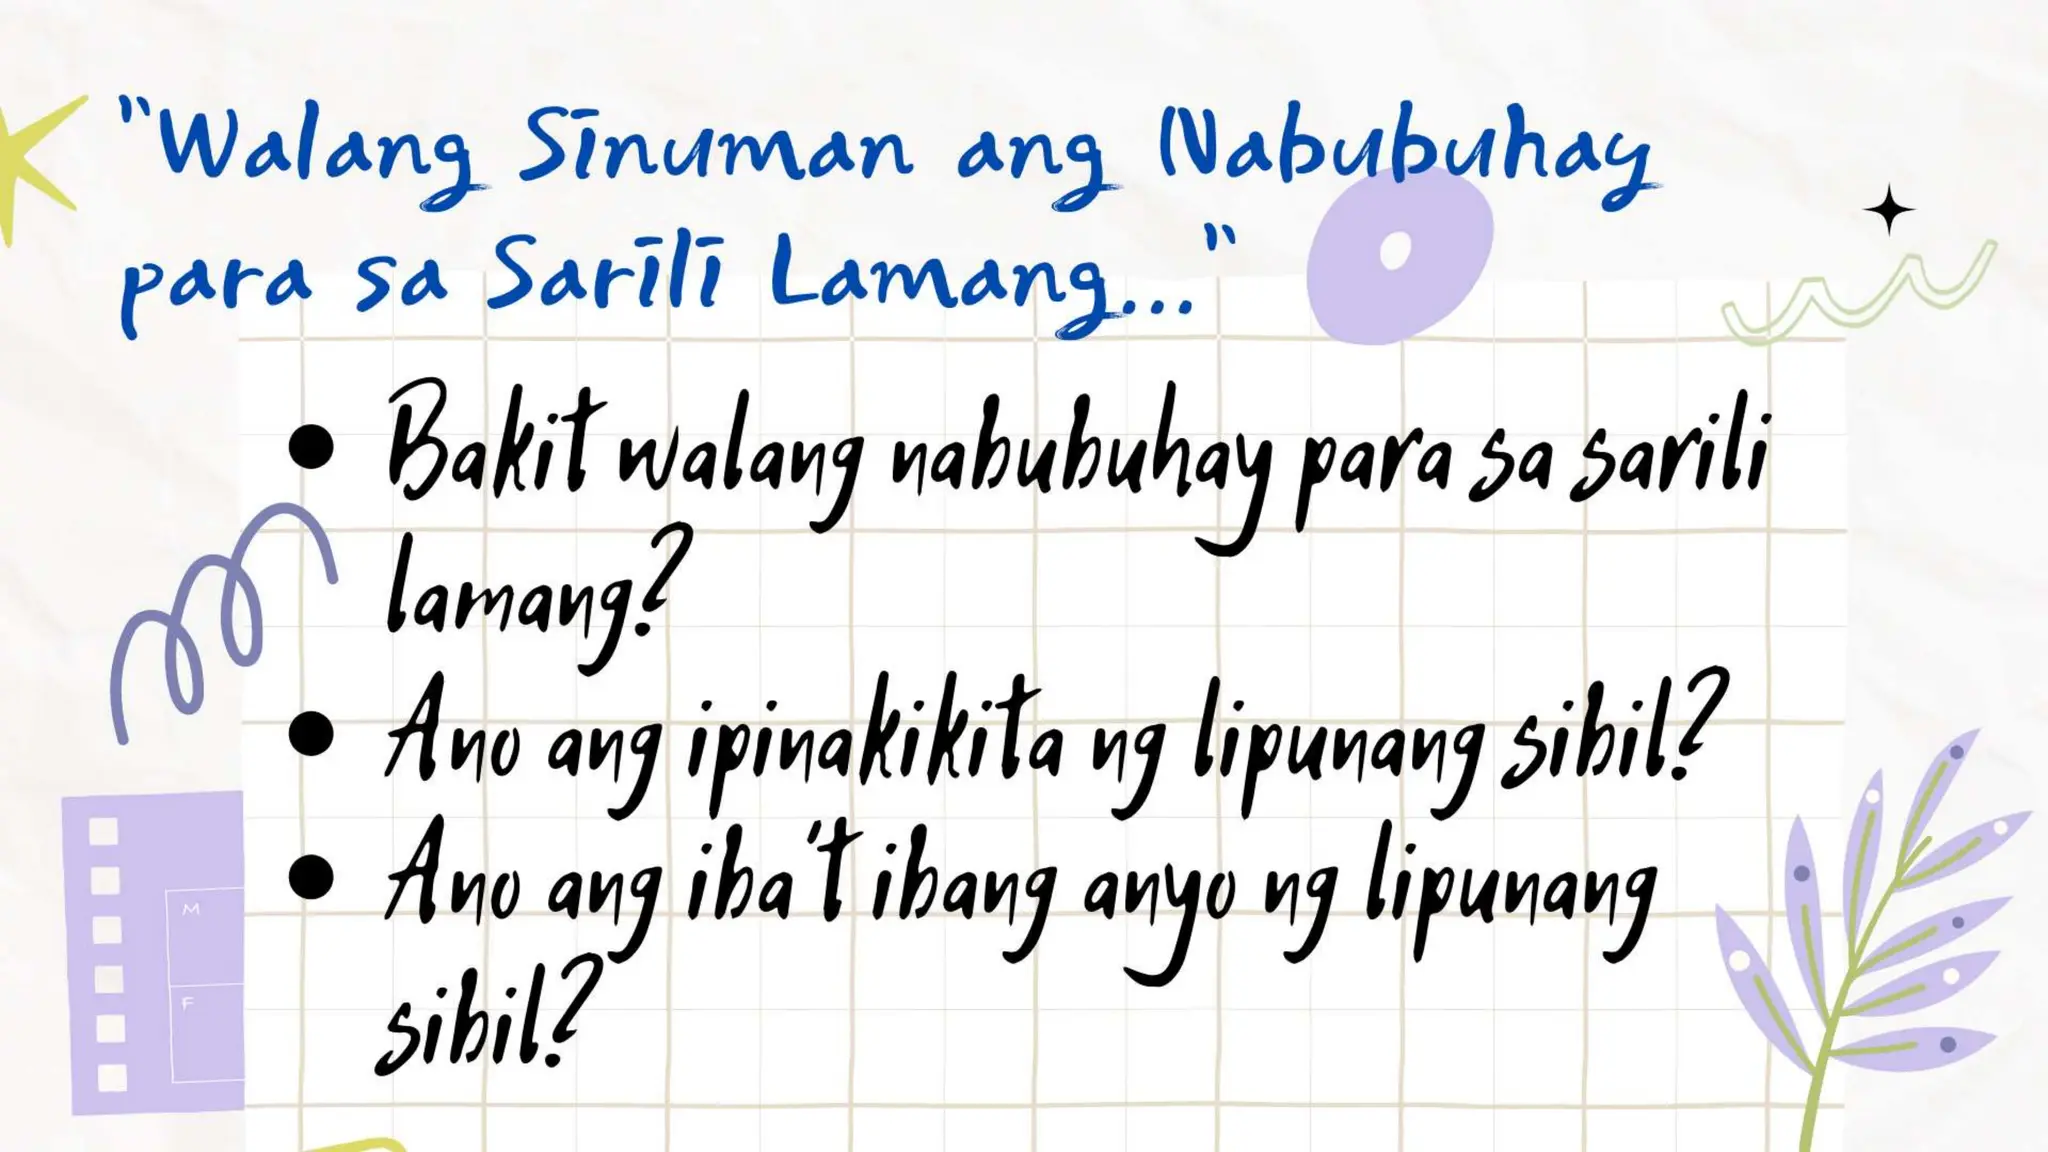 "Walang Sinuman ang Nabubuhay
para sa Sarili Lamang..."
• Bakit walang nabubuhay para sa sarili
lamang?
• Ano ang ipinakikita ng lipunang sibil?
• Ano ang iba't ibang anyo ng lipunang
sibil?
M
F